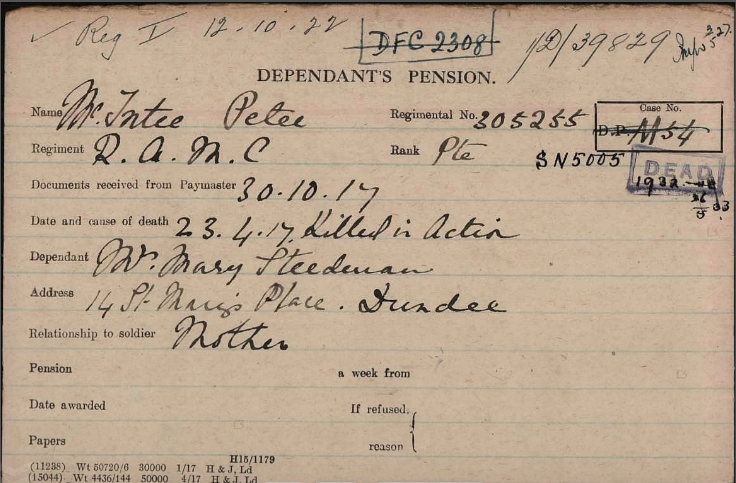 ✓ Reg V 12.10.22 DFC 2308 /D/39829
DEPENDANT'S PENSION.
Name Mc.Intee Peter Regimental No. 305255 Case No.
D.P. M54
Regiment R.A.M.C Rank Pte SN5005 DEAD
Documents received from Paymaster 30.10.17 1932
Date and cause of death 23.4.17. Killed in Action
Dependant Mrs. Mary Steedman
Address 14 St. Mary's Place. Dundee
Relationship to soldier Mother
Pension a week from
Date awarded If refused,
Papers reason {
H15/1179
(11238) Wt 50720/6 30000 1/17 H & J, Ld
(15044) Wt 4436/144 50000 4/17 H & J, Ld